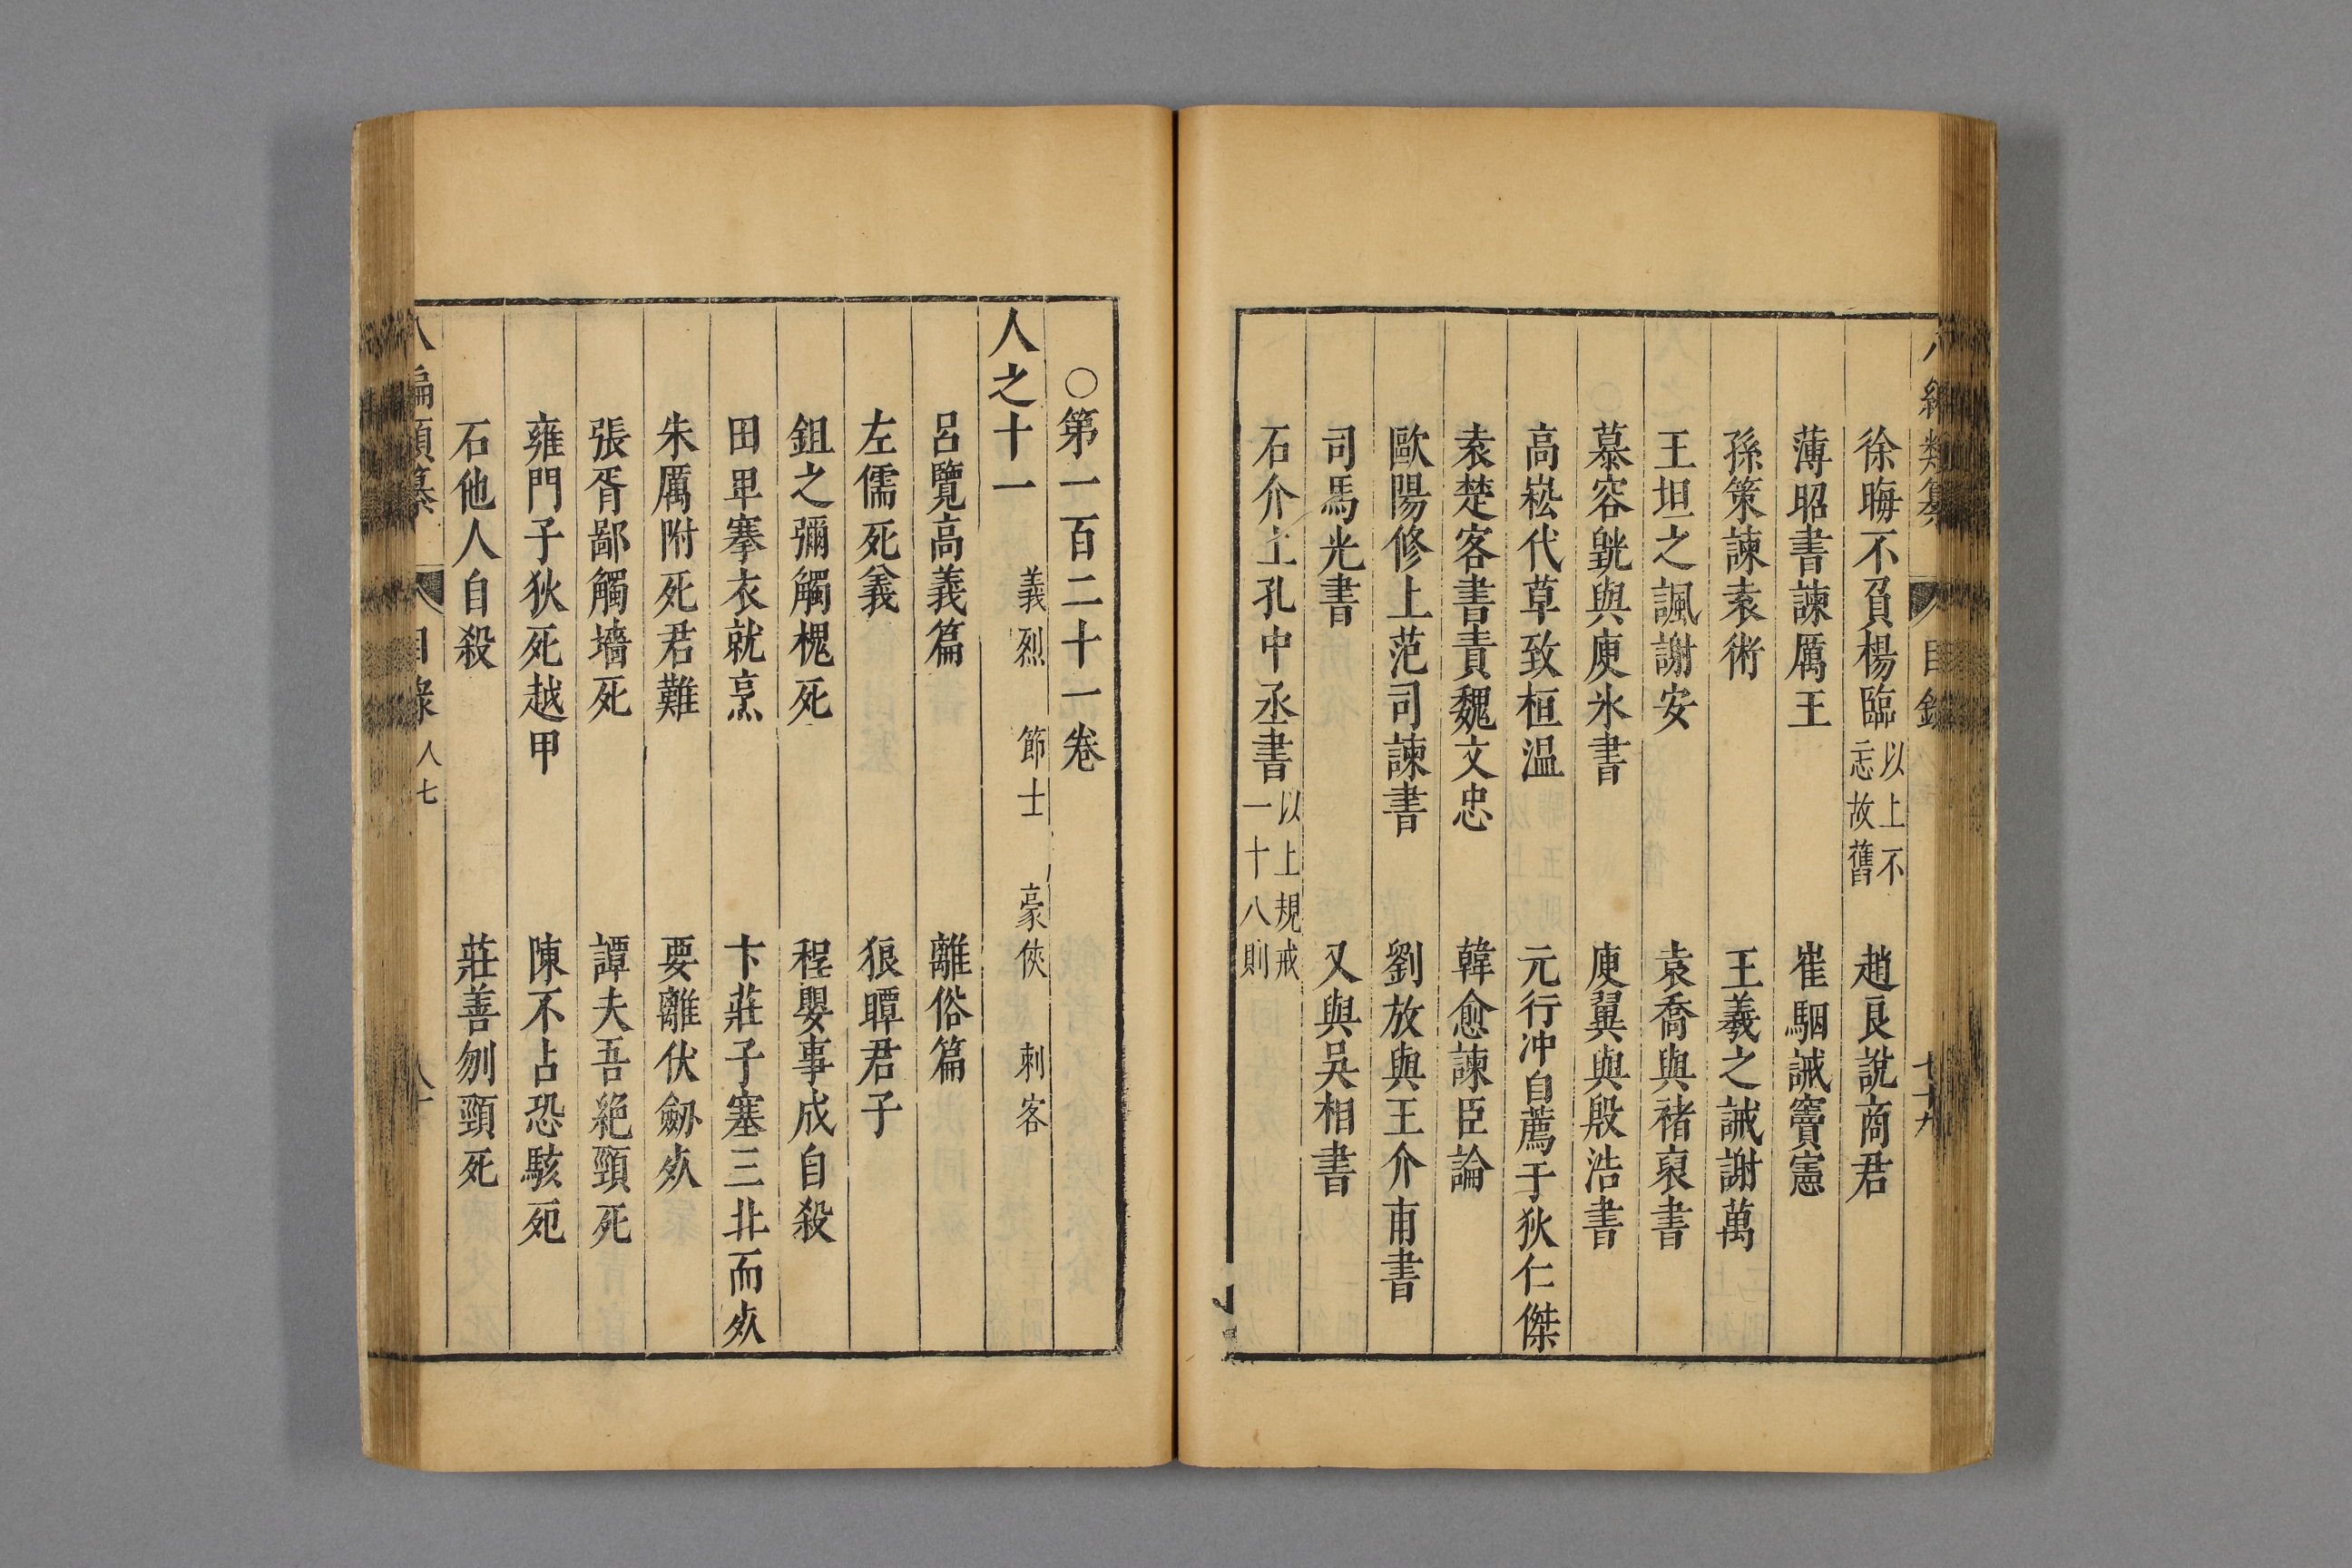 八編類纂 目錄 七十九
徐晦不負楊臨 以上不忘故舊 趙良說商君
薄昭書諫厲王 崔駰誡竇憲
孫策諫袁術 王羲之誡謝萬
王坦之諷謝安 袁喬與禇裒書
慕容皝與庾氷書 庾翼與殷浩書
高崧代草致桓温 元行冲自薦于狄仁傑
袁楚客書責魏文忠 韓愈諫臣論
歐陽修上范司諫書 劉放與王介甫書
司馬光書 又與吳相書
石介上孔中丞書 以上規戒一十八則
○第一百二十一卷
人之十一 義烈 節士 豪俠 刺客
呂覽高義篇 離俗篇
左儒死義 狼瞫君子
鉏之彌觸槐死 程嬰事成自殺
田𤰞搴衣就烹 卞莊子塞三北而死
朱厲附死君難 要離伏劒死
張胥鄙觸墻死 譚夫吾絶頸死
雍門子狄死越甲 陳不占恐駭死
石他人自殺 莊善刎頸死
八編類纂 目錄 人七 八十